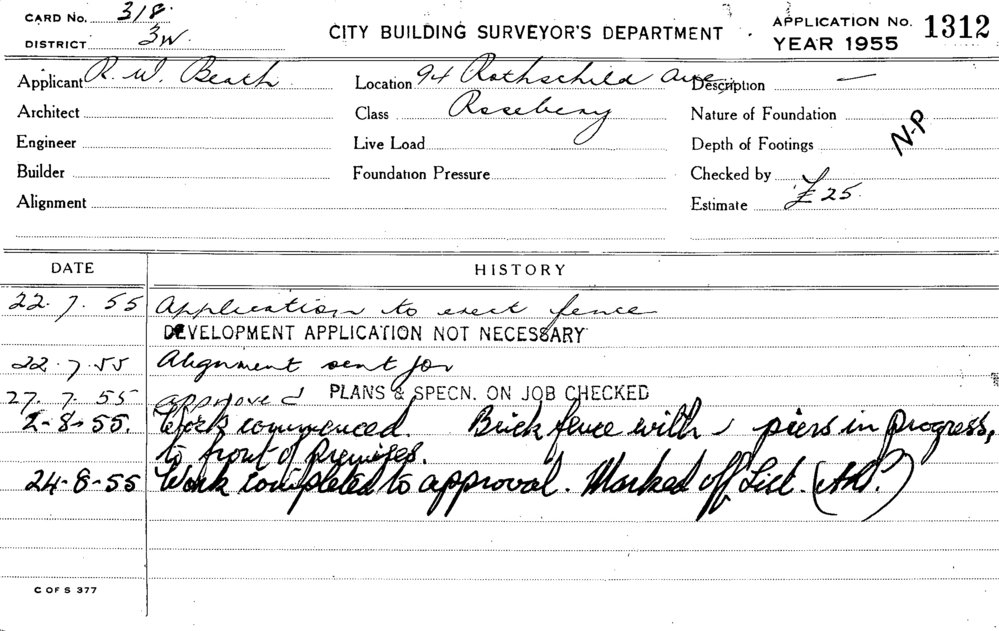 CARD No. 318.
DISTRICT 3W.
CITY BUILDING SURVEYOR'S DEPARTMENT
APPLICATION No. 1312
YEAR 1955
Applicant R. W. Beath
Location 94 Rothschild Ave
Description —
Architect
Class Rosebery
Nature of Foundation
N-P
Engineer
Live Load
Depth of Footings
Builder
Foundation Pressure
Checked by
Alignment
Estimate £25.
DATE HISTORY
22. 7. 55 Application to erect fence
DEVELOPMENT APPLICATION NOT NECESSARY
22. 7. 55 Alignment sent for
27. 7. 55 approved PLANS & SPECN. ON JOB CHECKED
2-8-55. Work commenced. Brick fence with piers in progress,
to front of premises.
24-8-55 Work completed to approval. Marked off List.
C OF S 377